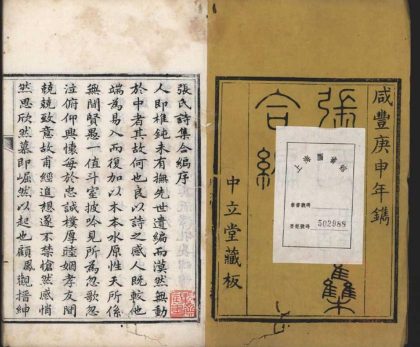 咸豐庚申年鐫
張
集
合編
中立堂藏板
502988
張氏詩集合編序
人即椎鈍未有撫先世遺編而漠然無動
於中者其故何也良以詩之感人既較他
端為易入而復加以木本水原性天所係
無間賢愚一值斗室披吟見所為忽歌忽
泣俯仰興懷每於忠誠樸厚睦姻孝友間
兢兢致意故甫經追想遂不禁愴然感悄
然思欣然慕即崛然以起也顧觀搢紳